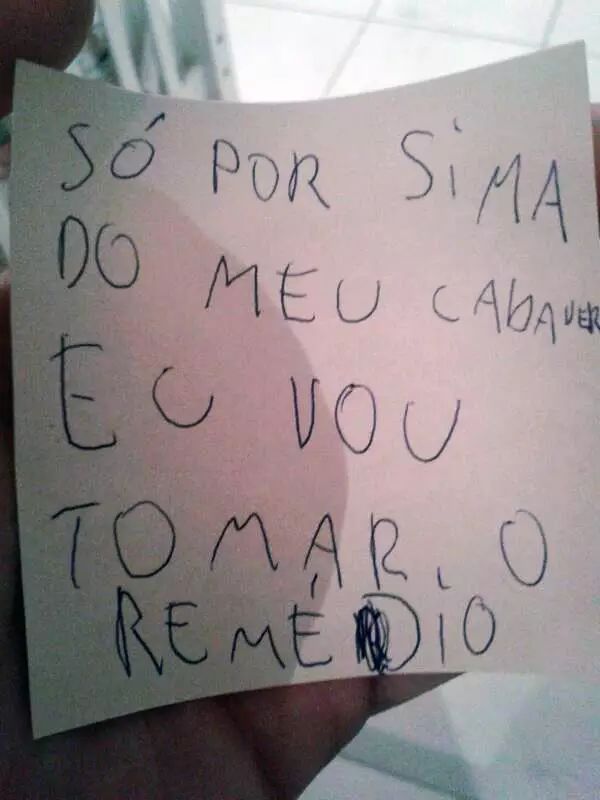 SÓ POR SIMA
DO MEU CADAVER
EU VOU
TOMAR. O
REMÉDIO